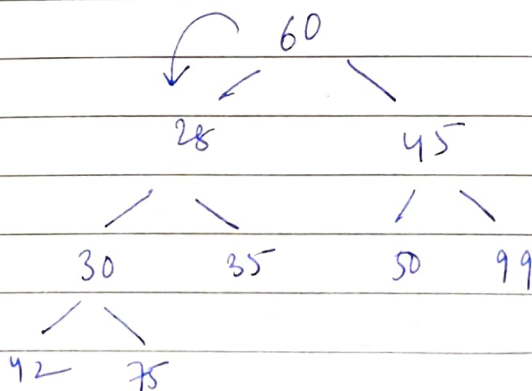 60
28 45
30 35 50 99
42 75